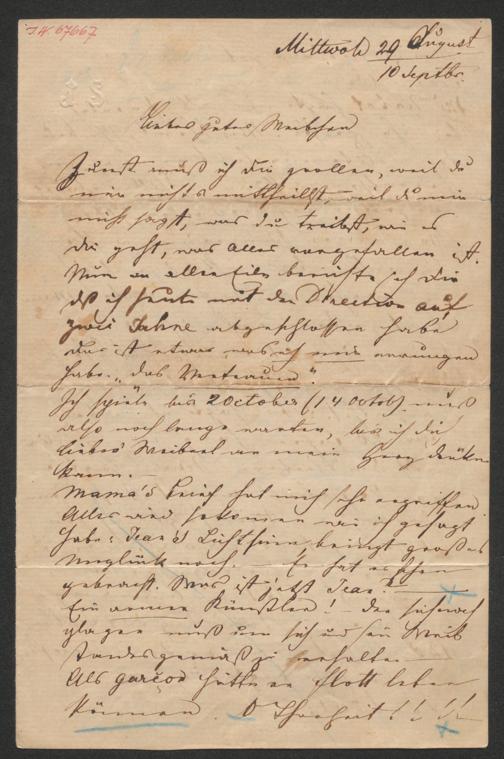 J.N. 67667
Mittwoch 29 August
10 Septbr.
Liebes gutes Weibchen
Zuerst muß ich Dir grollen, weil du
mir nichts mittheilst, weil du mir
nicht sagt, was du treibst, wie es
dir geht, was alles vorgefallen ist.
Nun in aller Eile berichte ich Dir
dß ich heute mit der Direction auf
zwei Jahre abgeschlossen habe
das ist etwas was ich errungen
habe. „das Vertrauen“
Ich spiele bis 2 October (14 Octob) muß
also noch lange warten, bis ich die
liebes Weiberl an mein Herz drücken
kann.
Mama's Brief hat mich sehr ergriffen
Alles wird so kommen wie ich gesagt
habe: Jean's Leichtsinn bringt großes
Unglück noch. — Er hat es schon
gebracht. Was ist jetzt Jean? —
Ein armer Künstler! — der sich
plagen muß um sich und sein Weib
standesgemäß zu erhalten —
Als garçon hätte er flott leben
können. O Thorheit! ! !